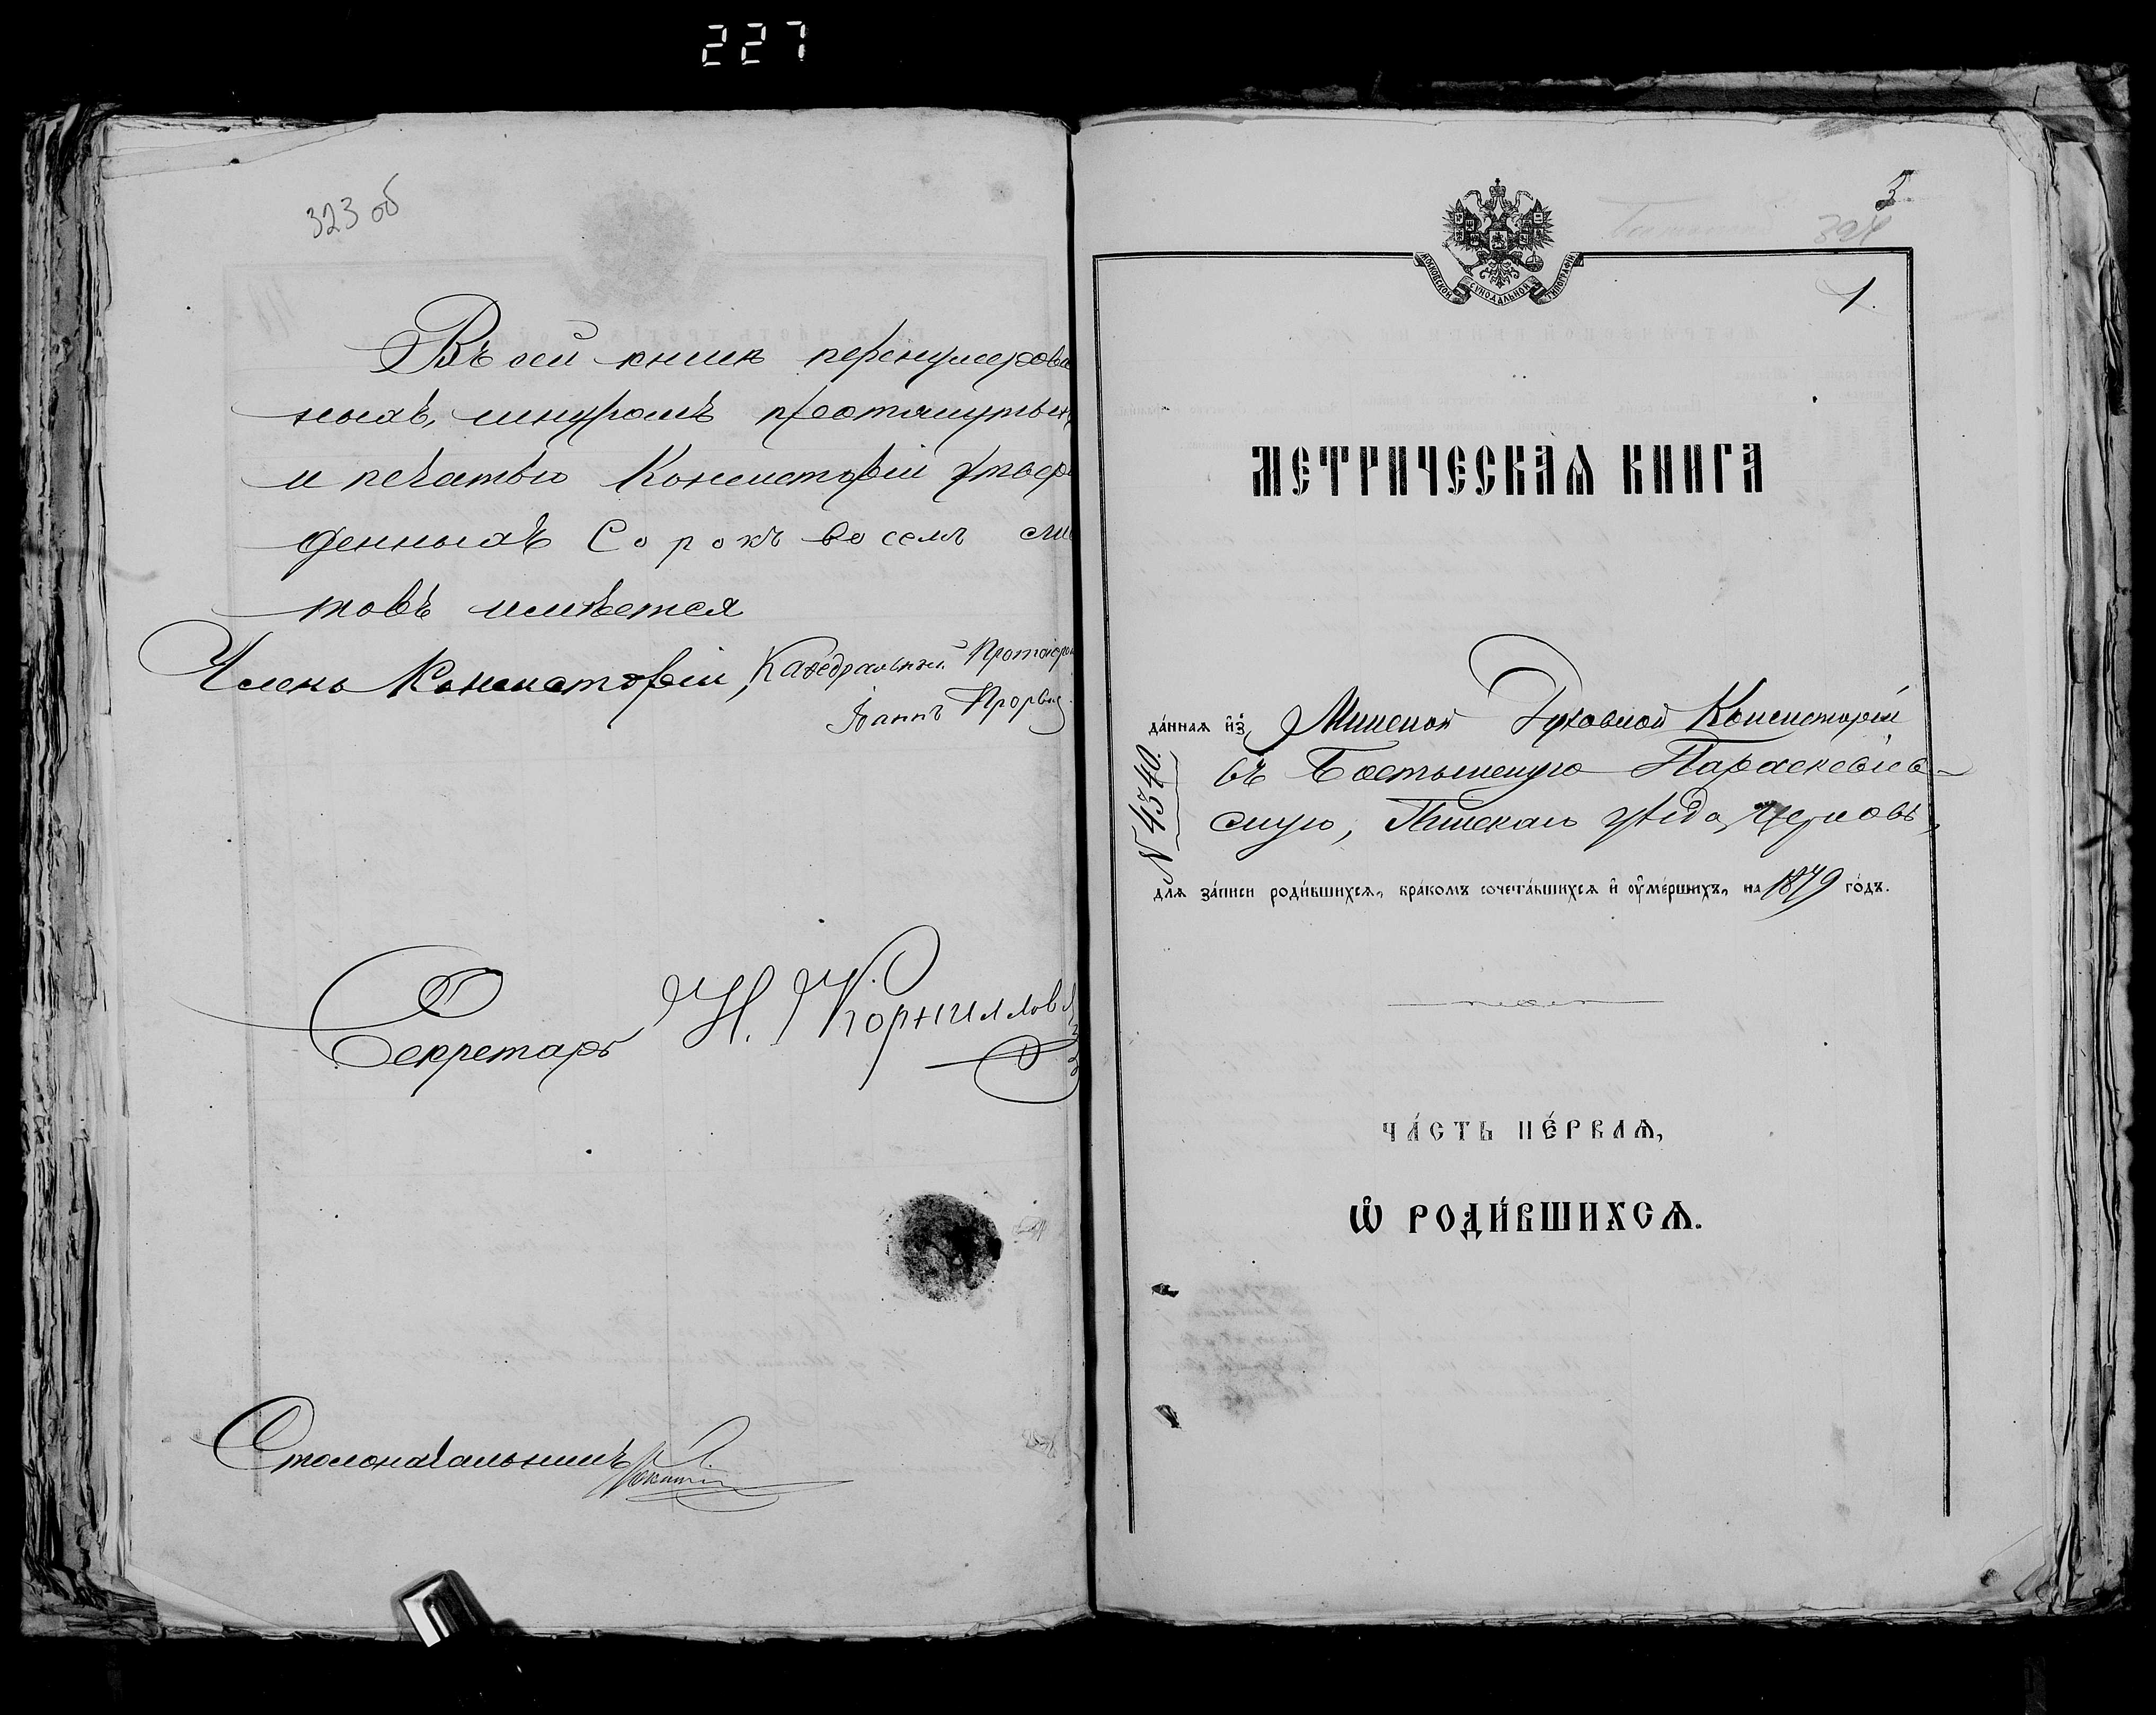 227
323 об
Въ сей книгѣ перенумерован
ныхъ, шнуромъ протянутых
и печатью Консисторіи утвер
жденныхъ Сорокъ восемь лис
товъ имѣется
Членъ Консисторіи, Каѳедральный Протоіерей
Іоаннъ
Секретарь Н. Корниллов
Столоначальникъ
3
324
1.
МОСКОВСКОЙ СѴНОДАЛЬНОЙ ТИПОГРАФІИ
МЕТРИЧЕСКАѦ КНИГА
да́ннаѧ и҆з̾ Минской Духовной Консисторіи
въ Бостынскую Параскевіев-
скую, Пинскаго уѣзда, церковь,
№ 4340.
длѧ за́писи роди́вшихсѧ, бра́комъ сочета́вшихсѧ и҆ ᲂу҆ме́ршихъ, на 1879 го́дъ.
ЧА́СТЬ ПЕ́РВАѦ,
Ѡ҆ РОДИ́ВШИХСѦ.